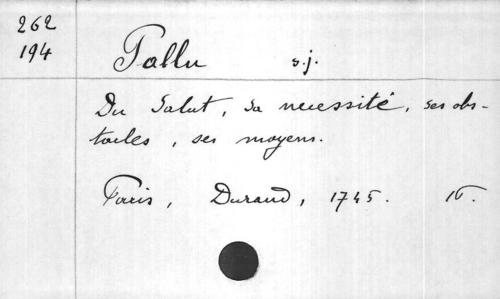 262
194
Pallu s.j.
Du Salut, sa necessité, ses obs-
tacles, ses moyens.
Paris, Durand, 1745. 16.